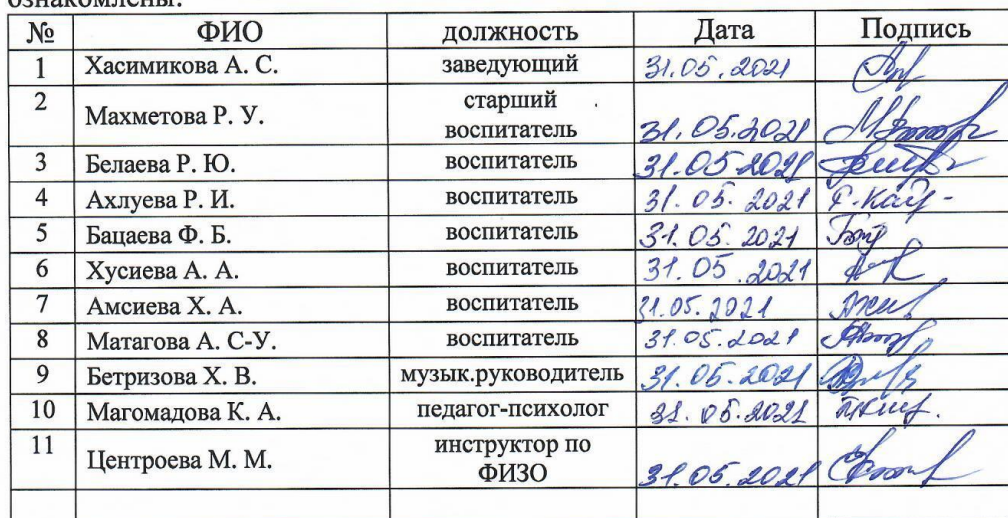 ознакомлены:
№ ФИО должность Дата Подпись
1 Хасимикова А. С. заведующий 31.05.2021
2 Махметова Р. У. старший воспитатель 31.05.2021
3 Белаева Р. Ю. воспитатель 31.05.2021
4 Ахлуева Р. И. воспитатель 31.05.2021
5 Бацаева Ф. Б. воспитатель 31.05.2021
6 Хусиева А. А. воспитатель 31.05.2021
7 Амсиева Х. А. воспитатель 31.05.2021
8 Матагова А. С-У. воспитатель 31.05.2021
9 Бетризова Х. В. музык.руководитель 31.05.2021
10 Магомадова К. А. педагог-психолог 31.05.2021
11 Центроева М. М. инструктор по ФИЗО 31.05.2021